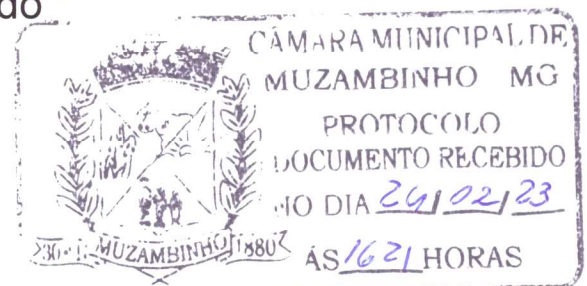 do
CÂMARA MUNICIPAL DE
MUZAMBINHO MG
PROTOCOLO
DOCUMENTO RECEBIDO
NO DIA 24/02/23
ÀS 1621 HORAS
MUZAMBINHO 1880